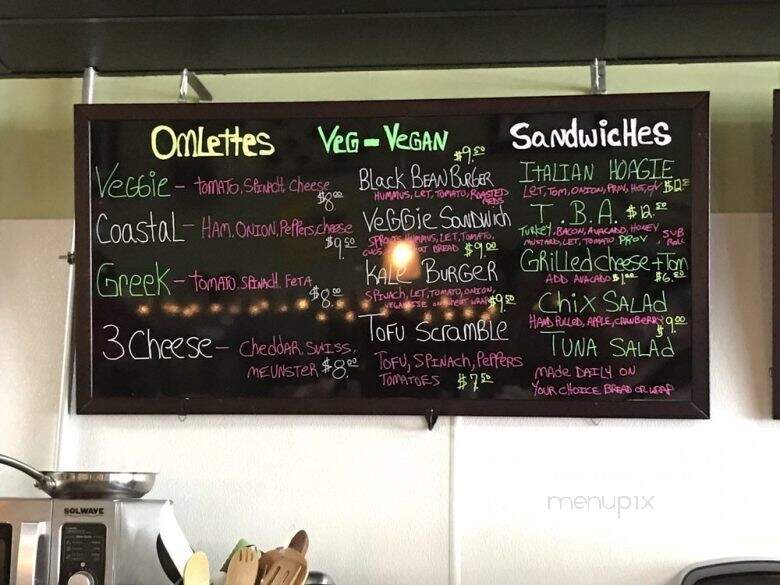 Omlettes
Veggie - tomato, spinach, cheese
$8.00
Coastal - Ham, onion, peppers, cheese
$9.50
Greek - tomato, spinach, feta
$8.00
3 Cheese - cheddar, swiss,
meunster $8.00
Veg - Vegan
$9.50
Black Bean Burger
hummus, let, tomato, roasted
Veggie Sandwich
sprouts, hummus, let, tomato,
bread $9.00
Kale Burger
spinach, let, tomato, onion,
wheat wrap $9.50
Tofu Scramble
Tofu, spinach, peppers
tomatoes $7.50
Sandwiches
Italian Hoagie
let, tom, onion, prov, hot,
T.B.A. $12.50
turkey, bacon, avacado, honey
mustard, let, tomato prov sub roll
Grilled cheese + Tom
add avacado $6.50
Chix Salad
Hand pulled, apple, cranberry $9.00
Tuna Salad
made daily on
your choice bread or wrap
SOLWAVE
menupix